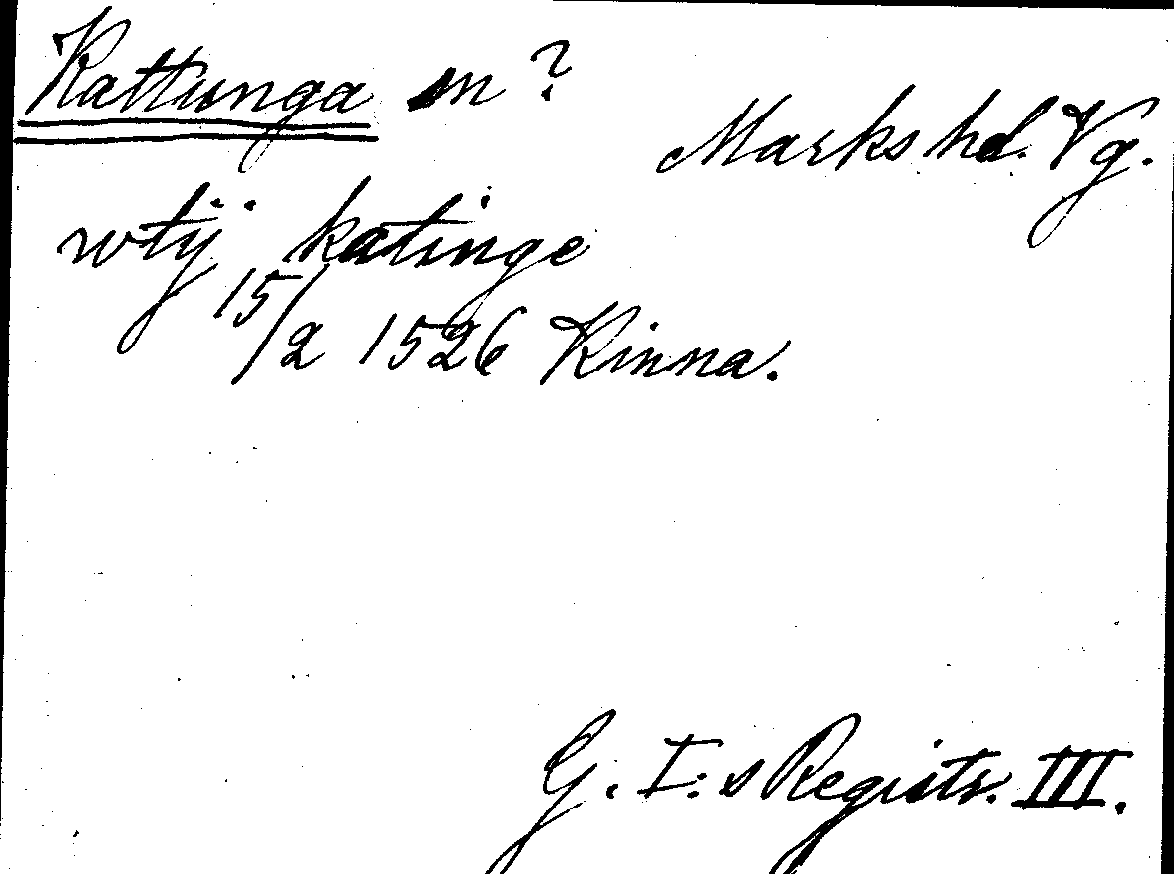 Kattunga sn ?
Marks hd. Vg.
wtij katinge
15/2 1526 Kinna.
G. I:s Registr. III.